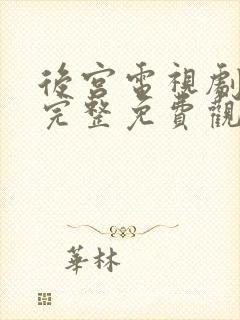 後宮電視劇
完整免費觀
華林